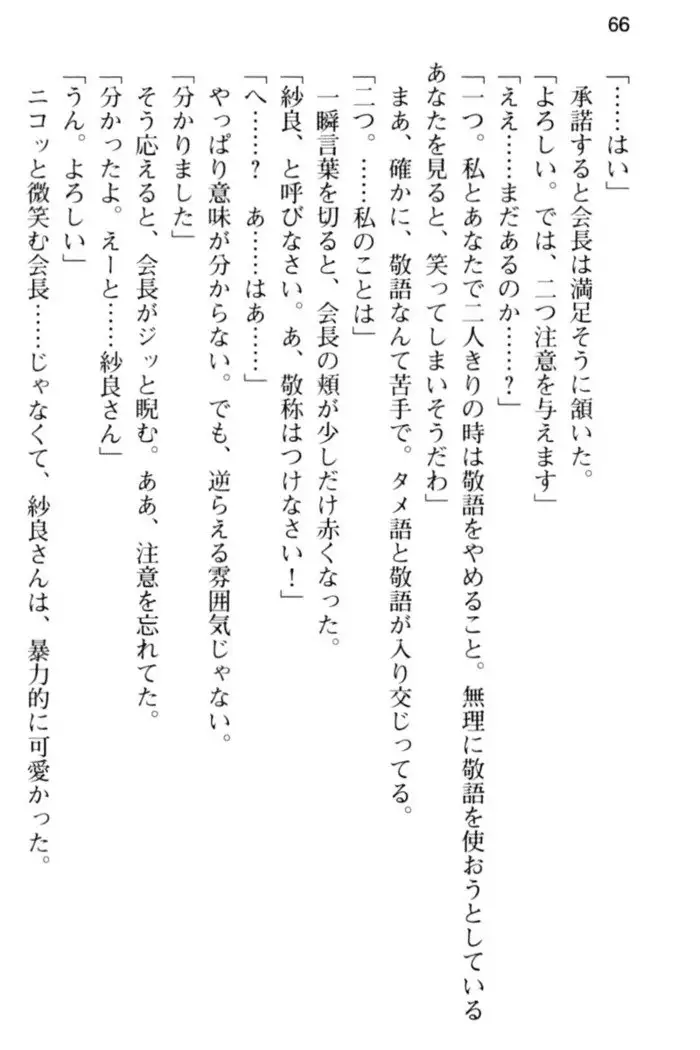 66
「……はい」
　承諾すると会長は満足そうに頷いた。
「よろしい。では、二つ注意を与えます」
「ええ……まだあるのか……？」
「一つ。私とあなたで二人きりの時は敬語をやめること。無理に敬語を使おうとしている
あなたを見ると、笑ってしまいそうだわ」
　まあ、確かに、敬語なんて苦手で。タメ語と敬語が入り交じってる。
「二つ。……私のことは」
　一瞬言葉を切ると、会長の頬が少しだけ赤くなった。
「紗良、と呼びなさい。あ、敬称はつけなさい！」
「へ……？　あ……はあ……」
　やっぱり意味が分からない。でも、逆らえる雰囲気じゃない。
「分かりました」
　そう応えると、会長がジッと睨む。ああ、注意を忘れてた。
「分かったよ。えーと……紗良さん」
「うん。よろしい」
　ニコッと微笑む会長……じゃなくて、紗良さんは、暴力的に可愛かった。